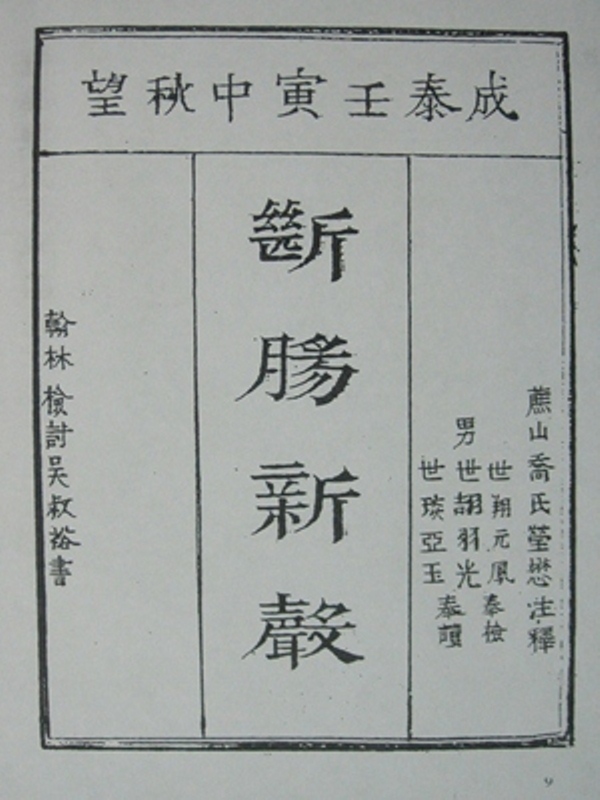 成泰壬寅中秋望
蕉山喬氏瑩懋注釋
世翔元鳳奉檢
男世羽光
世琰亞玉奉讀
斷膓新聲
翰林檢討吳叔裕書
9